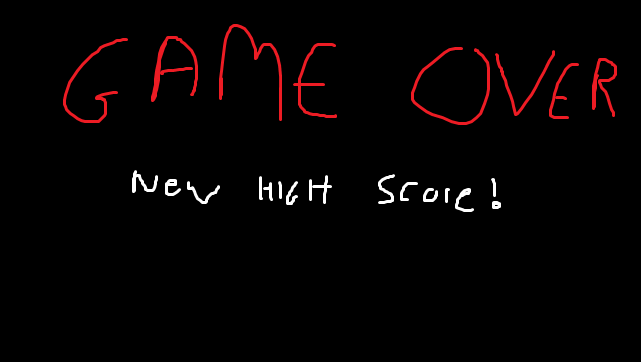 GAME OVER
New HIGH Score!